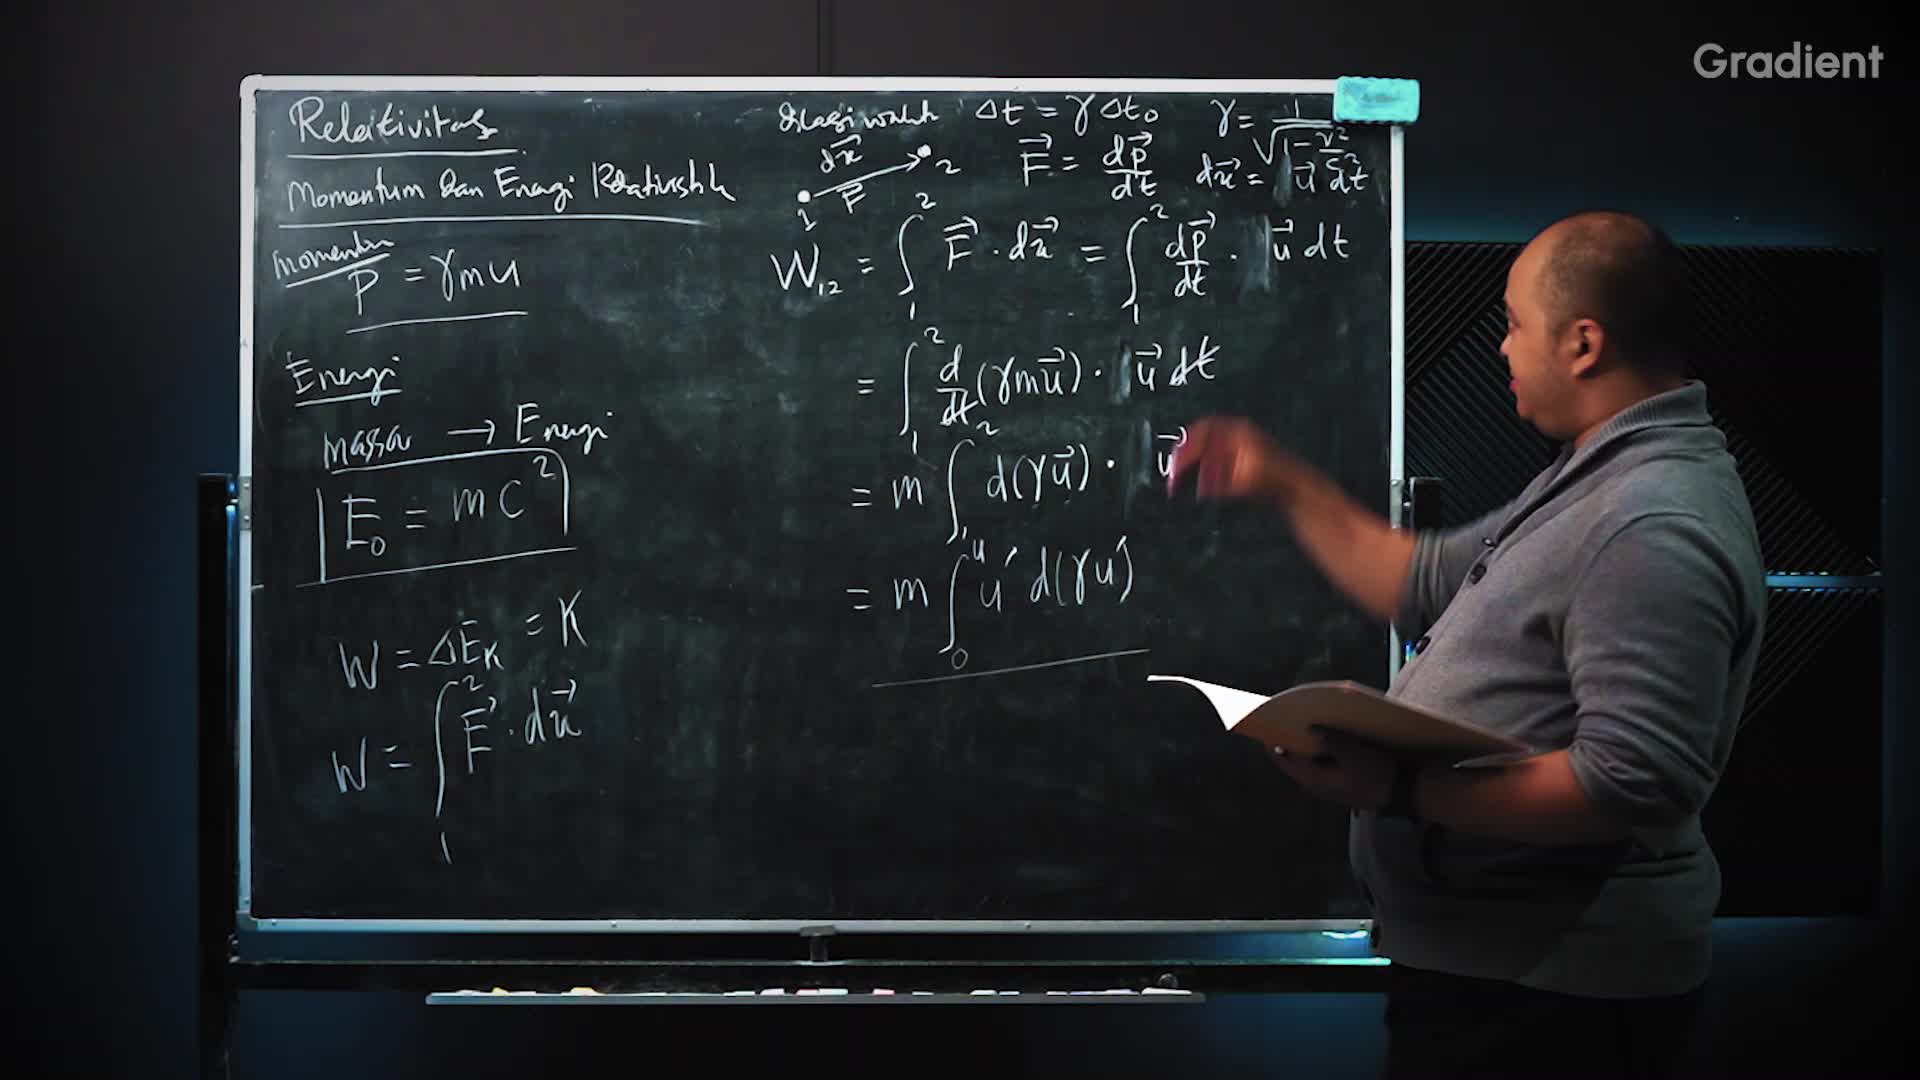 Gradient
Relativitas
Momentum dan Energi Relativistik
Momentum
P = γmu
Energi
Massa → Energi
E₀ = mc²
W = ΔEₖ = K
W = ∫₁² F⃗ · dx⃗
Dilasi waktu Δt = γΔt₀ γ = 1/√(1 - v²/c²)
dx⃗
1 F⃗ 2
F⃗ = dp⃗/dt dx⃗ = u⃗ dt
W₁₂ = ∫₁² F⃗ · dx⃗ = ∫₁² dp⃗/dt · u⃗ dt
= ∫₁² d/dt (γmu⃗) · u⃗ dt
= m ∫₁² d(γu⃗) · u⃗
= m ∫₀ᵘ u′ d(γu′)